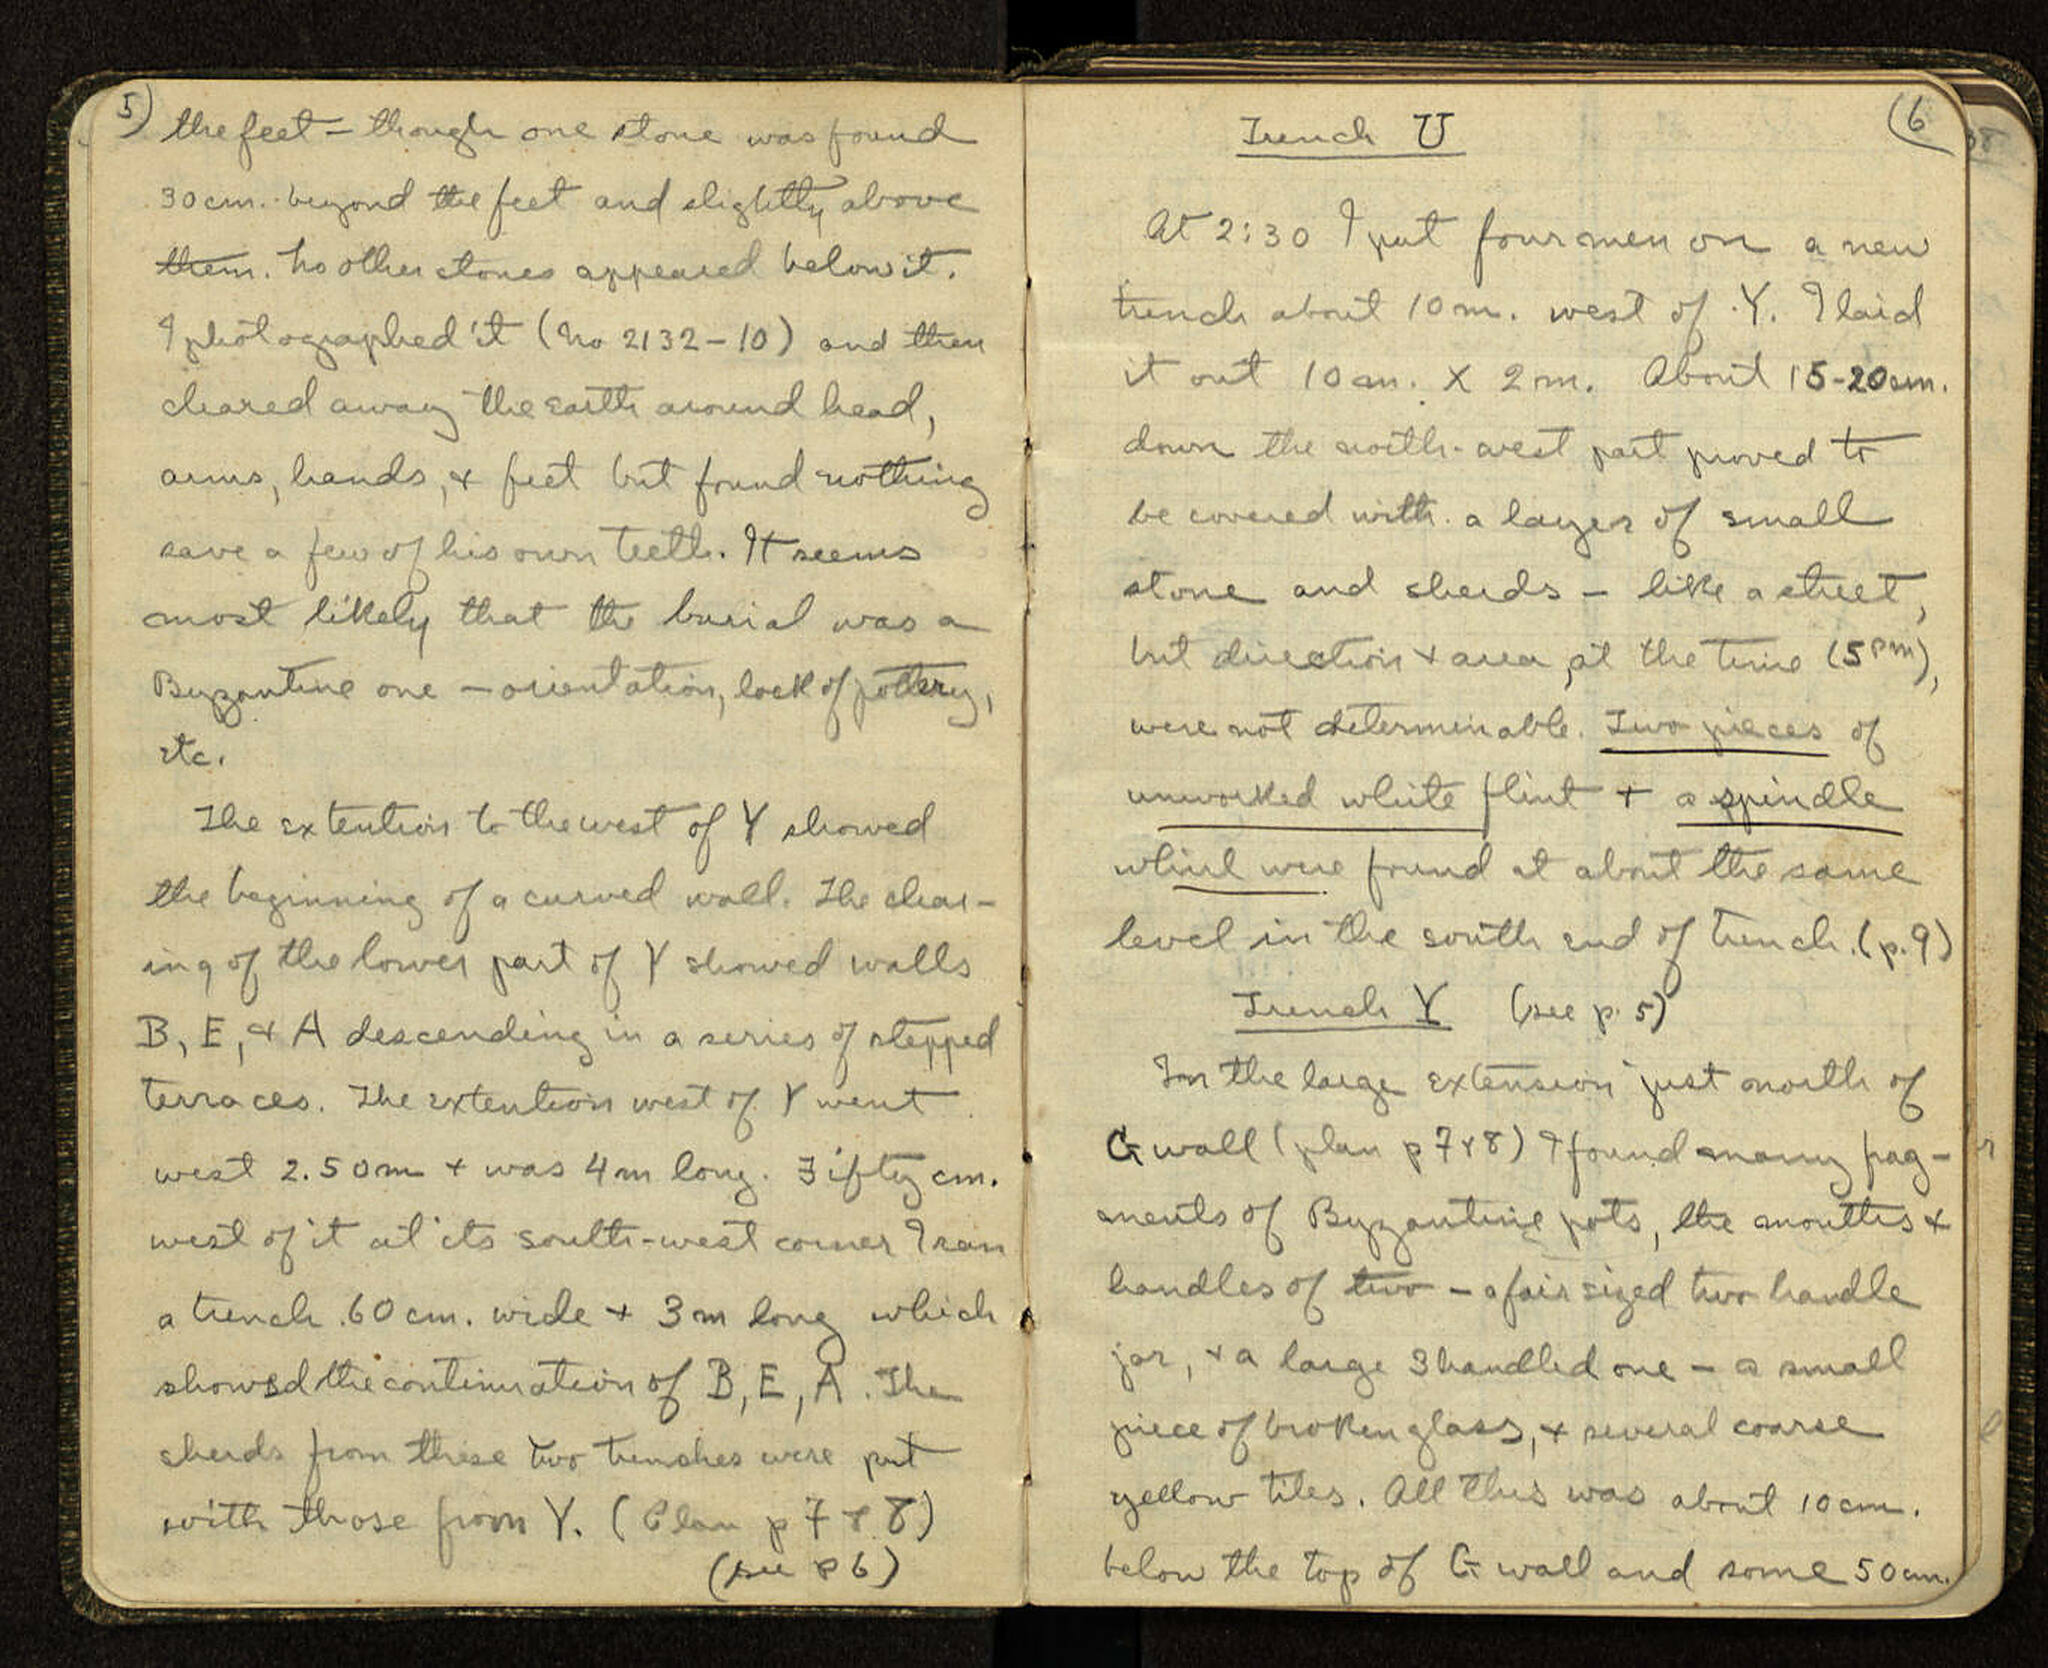 5)
the feet - though one stone was found
30 cm. beyond the feet and slightly above
them. No other stones appeared below it.
I photographed it (No 2132-10) and then
cleared away the earth around head,
arms, hands, & feet but found nothing
save a few of his own teeth. It seems
most likely that the burial was a
Byzantine one - orientation, lack of pottery,
etc.
The extention to the west of Y showed
the beginning of a curved wall. The clear-
ing of the lower part of Y showed walls
B, E, & A descending in a series of stepped
terraces. The extention west of Y went
west 2.50 m + was 4 m long. Fifty cm.
west of it at its south-west corner I ran
a trench .60 cm. wide + 3 m long which
showed the continuation of B, E, A. The
sherds from these two trenches were put
with those from Y. (Plan p 7 + 8)
(see p 6)
(6
Trench U
At 2:30 I put four men on a new
trench about 10 m. west of Y. I laid
it out 10 m. X 2 m. About 15-20 cm.
down the north-west part proved to
be covered with a layer of small
stone and sherds - like a street,
but direction + area, at the time (5 PM),
were not determinable. Two pieces of
unworked white flint + a spindle
whirl were found at about the same
level in the south end of trench. (p. 9)
Trench Y (see p. 5)
In the large extension just north of
G wall (plan p 7 + 8) I found many frag-
ments of Byzantine pots, the mouths +
handles of two - a fair sized two handle
jar, + a large 3 handled one - a small
piece of broken glass, + several coarse
yellow tiles. All this was about 10 cm.
below the top of G wall and some 50 cm.